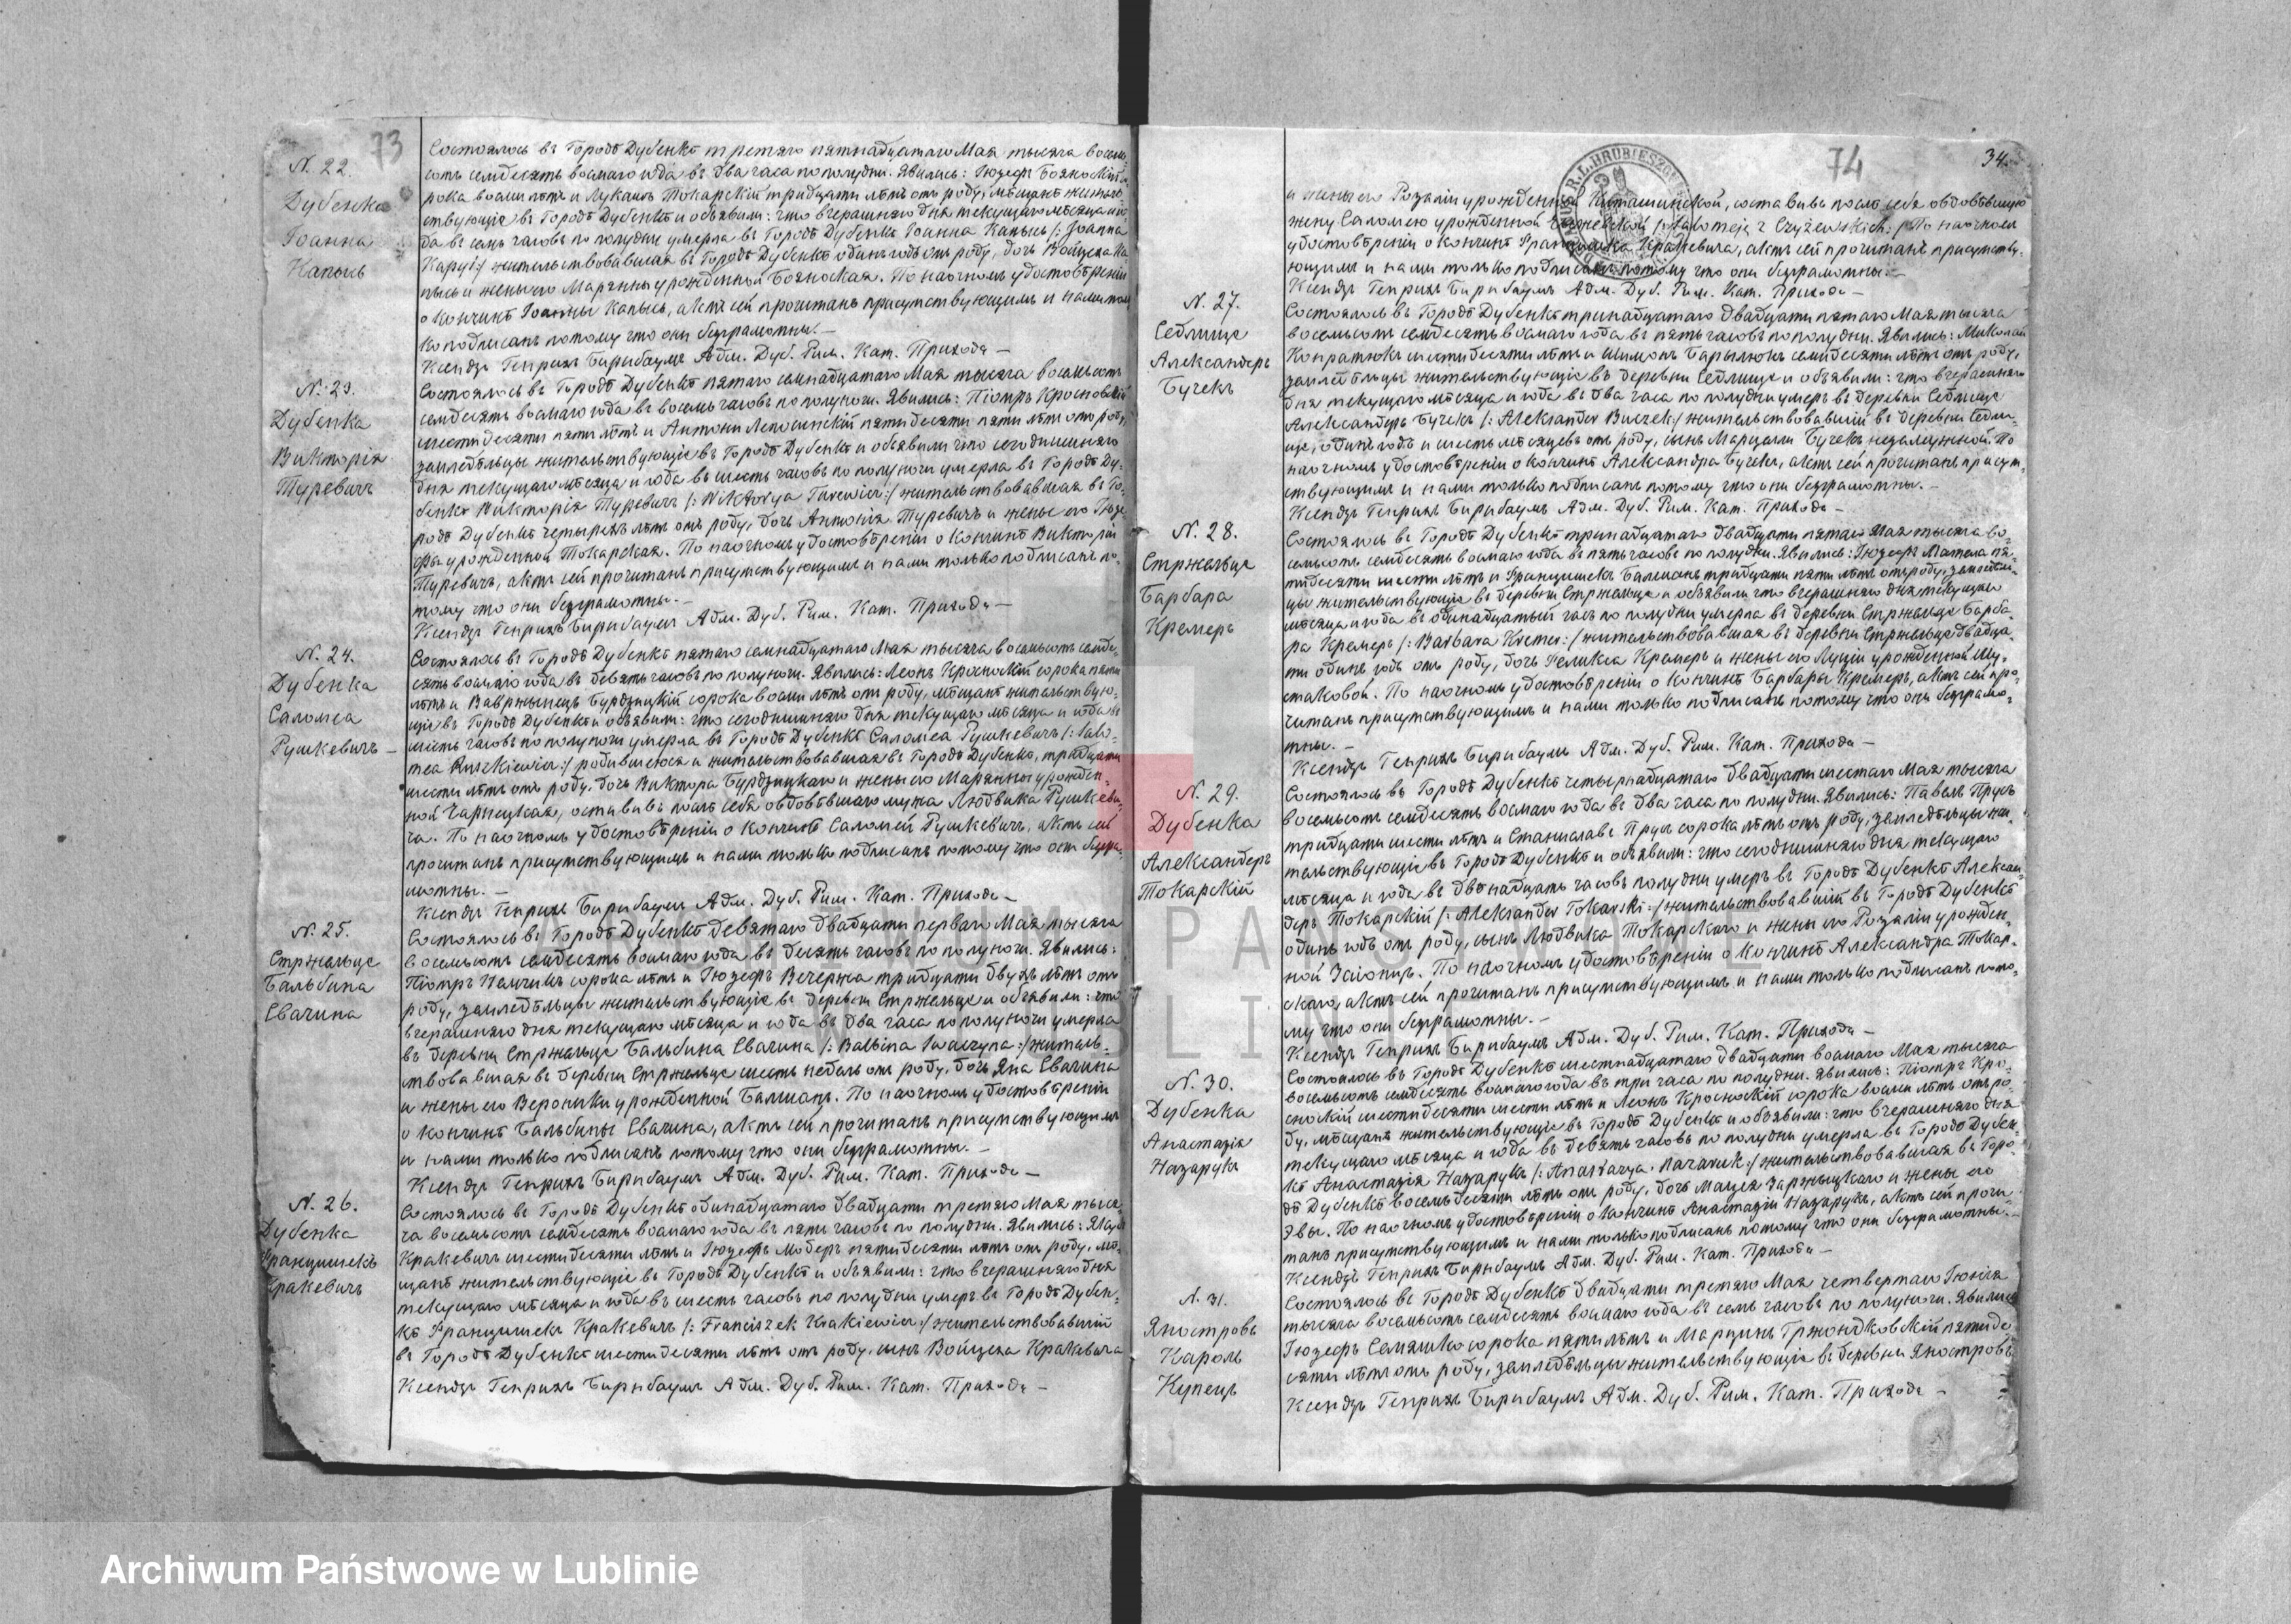 73
N. 22.
Дубенка
Іоанна
Капысь
Состоялось въ Городѣ Дубенкѣ третяго пятнадцатаго Мая тысяча восемь
сотъ семдесятъ восмаго года въ два часа по полудни. Явились: Іюзефъ
рока восми лѣтъ и Лукашъ Токарскій тридцати лѣтъ отъ роду, мѣщанѣ жительст-
ствующіе въ Городѣ Дубенкѣ и объявили: что вчерашняго дня текущаго мѣсяца и го-
да въ семь часовъ по полудни умерла въ Городѣ Дубенкѣ Іоанна Капысь /: Joanna
жительствовавшая въ Городѣ Дубенкѣ одинъ годъ отъ роду, дочь Войцеха Ка-
пысь и жены его Марянны урожденной Бояноская. По наочномъ удостовѣреніи
о кончинѣ Іоанны Капысь, актъ сей прочитанъ присутствующимъ и нами толь-
ко подписанъ потому что они безграмотны.—
Ксендзъ Генрихъ Бирнбаумъ Адм. Дуб. Рим. Кат. Прихода —
N. 23.
Дубенка
Викторія
Туревичъ
Состоялось въ Городѣ Дубенкѣ пятаго семнадцатаго Мая тысяча восемьсотъ
семдесятъ восмаго года въ восемь часовъ по полуночи. Явились: Піотръ Кросновскій
шестидесяти пяти лѣтъ и Антони пятидесяти пяти лѣтъ отъ роду,
земледѣльцы жительствующіе въ Городѣ Дубенкѣ и объявили что сегоднишняго
дня текущаго мѣсяца и года въ шесть часовъ по полуночи умерла въ Городѣ Ду-
бенкѣ Викторія Туревичъ /: Wiktorya Turewicz :/ жительствовавшая въ Го-
родѣ Дубенкѣ четырехъ лѣтъ отъ роду, дочь Антонія Туревичъ и жены его Іюзе-
фы урожденной Токарская. По наочномъ удостовѣреніи о кончинѣ Викторіи
Туревичъ, актъ сей прочитанъ присутствующимъ и нами только подписанъ по-
тому что они безграмотны.—
Ксендзъ Генрихъ Бирнбаумъ Адм. Дуб. Рим. Кат. Прихода —
N. 24.
Дубенка
Саломеа
Рушкевичъ —
Состоялось въ Городѣ Дубенкѣ пятаго семнадцатаго Мая тысяча восемьсотъ семде-
сятъ восмаго года въ девять часовъ по полуночи. Явились: Леонъ Кросноскій сорока пяти
лѣтъ и Вавржинецъ Бурдзицкій сорока восми лѣтъ отъ роду, мѣщанѣ жительствую-
щіе въ Городѣ Дубенкѣ и объявили: что сегоднишняго дня текущаго мѣсяца и года въ
шесть часовъ по полуночи умерла въ Городѣ Дубенкѣ Саломеа Рушкевичъ /: Salo-
mea Ruszkiewicz :/ родившеюся и жительствовавшая въ Городѣ Дубенкѣ, тридцати
шести лѣтъ отъ роду, дочь Виктора Бурдзицкаго и жены его Марянны урожден-
ной Чарнецкая, оставивъ послѣ себя овдовѣвшаго мужа Людвика Рушкеви-
ча. По наочномъ удостовѣреніи о кончинѣ Саломеи Рушкевичъ, актъ сей
прочитанъ присутствующимъ и нами только подписанъ потому что они безгра-
мотны. —
Ксендзъ Генрихъ Бирнбаумъ Адм. Дуб. Рим. Кат. Прихода —
N. 25.
Стржельце
Бальбина
Свачина
Состоялось въ Городѣ Дубенкѣ девятаго двадцати перваго Мая тысяча
восемьсотъ семдесятъ восмаго года въ десять часовъ по полуночи. Явились:
Піотръ сорока лѣтъ и Іюзефъ Вечержа тридцати двухъ лѣтъ отъ
роду, земледѣльцы жительствующіе въ деревни Стржельце и объявили: что
вчерашняго дня текущаго мѣсяца и года въ два часа по полуночи умерла
въ деревни Стржельце Бальбина Свачина /: Balbina Swaczyna :/ житель-
ствовавшая въ деревни Стржельце шесть недель отъ роду, дочь Яна Свачина
и жены его Вероники урожденной Балманъ. По наочномъ удостовѣреніи
о кончинѣ Бальбины Свачина, актъ сей прочитанъ присутствующимъ
и нами только подписанъ потому что они безграмотны. —
Ксендзъ Генрихъ Бирнбаумъ Адм. Дуб. Рим. Кат. Прихода —
N. 26.
Дубенка
Францишекъ
Кракевичъ
Состоялось въ Городѣ Дубенкѣ одинадцатаго двадцати третяго Мая тыся-
ча восемьсотъ семдесятъ восмаго года въ пять часовъ по полудни. Явились:
Кракевичъ шестидесяти лѣтъ и Іюзефъ Модеръ пятидесяти лѣтъ отъ роду, мѣ-
щанѣ жительствующіе въ Городѣ Дубенкѣ и объявили: что вчерашняго дня
текущаго мѣсяца и года въ шесть часовъ по полудни умеръ въ Городѣ Дубен-
кѣ Францишекъ Кракевичъ /: Franciszek Krakiewicz :/ жительствовавшій
въ Городѣ Дубенкѣ шестидесяти лѣтъ отъ роду, сынъ Войцеха Кракевича
Ксендзъ Генрихъ Бирнбаумъ Адм. Дуб. Рим. Кат. Прихода —
74
34.
и жены его Розаліи урожденной, оставивъ послѣ себя овдовѣвшую
жену Саломею урожденной /: Salomeją z Czyżewskich :/ По наочном
удостовѣреніи о кончинѣ Францишка Кракевича, актъ сей прочитанъ присутству-
ющимъ и нами только подписанъ потому что они безграмотны.—
Ксендзъ Генрихъ Бирнбаумъ Адм. Дуб. Рим. Кат. Прихода —
N. 27.
Седлище
Александеръ
Бучекъ
Состоялось въ Городѣ Дубенкѣ тринадцатаго двадцати пятаго Мая тысяча
восемьсотъ семдесятъ восмаго года въ пять часовъ по полудни. Явились: Миколай
Кондратюкъ шестидесяти лѣтъ и Шимонъ Барылюкъ семидесяти лѣтъ отъ роду,
земледѣльцы жительствующіе въ деревни Седлище и объявили: что вчерашняго
дня текущаго мѣсяца и года въ два часа по полудни умеръ въ деревни Седлище
Александеръ Бучекъ /: Aleksander Buczek :/ жительствовавшій въ деревни Седли-
ще, одинъ годъ и шесть мѣсяцевъ отъ роду, сынъ Марцели Бучекъ незамужной. По
наочномъ удостовѣреніи о кончинѣ Александра Бучекъ, актъ сей прочитанъ присут-
ствующимъ и нами только подписанъ потому что они безграмотны. —
Ксендзъ Генрихъ Бирнбаумъ Адм. Дуб. Рим. Кат. Прихода —
N. 28.
Стржельце
Барбара
Кремеръ
Состоялось въ Городѣ Дубенкѣ тринадцатаго двадцати пятаго Мая тысяча во-
семьсотъ семдесятъ восмаго года въ пять часовъ по полудни. Явились: Іюзефъ Матела пя-
тидесяти шести лѣтъ и Францишекъ Балманъ тридцати пяти лѣтъ отъ роду, земледѣль-
цы жительствующіе въ деревни Стржельце и объявили что вчерашняго дня текущаго
мѣсяца и года въ одинадцатый часъ по полудни умерла въ деревни Стржельце Барба-
ра Кремеръ /: Barbara Kremer :/ жительствовавшая въ деревни Стржельце двадца-
ти одинъ годъ отъ роду, дочь Феликса Кремеръ и жены его Луціи урожденной Шу-
стаковой. По наочномъ удостовѣреніи о кончинѣ Барбары Кремеръ, актъ сей про-
читанъ присутствующимъ и нами только подписанъ потому что они безграмо-
тны. —
Ксендзъ Генрихъ Бирнбаумъ Адм. Дуб. Рим. Кат. Прихода —
N. 29.
Дубенка
Александеръ
Токарскій
Состоялось въ Городѣ Дубенкѣ четырнадцатаго двадцати шестаго Мая тысяча
восемьсотъ семдесятъ восмаго года въ два часа по полудни. Явились: Павелъ Прусъ
тридцати шести лѣтъ и Станиславъ Прусъ сорока лѣтъ отъ роду, земледѣльцы жи-
тельствующіе въ Городѣ Дубенкѣ и объявили: что сегоднишняго дня текущаго
мѣсяца и года въ двѣнадцать часовъ полудни умеръ въ Городѣ Дубенкѣ Алексан-
деръ Токарскій /: Aleksander Tokarski :/ жительствовавшій въ Городѣ Дубенкѣ
одинъ годъ отъ роду, сынъ Людвика Токарскаго и жены его Розаліи урожден-
ной. По наочномъ удостовѣреніи о кончинѣ Александра Токар-
скаго, актъ сей прочитанъ присутствующимъ и нами только подписанъ пото-
му что они безграмотны. —
Ксендзъ Генрихъ Бирнбаумъ Адм. Дуб. Рим. Кат. Прихода —
N. 30.
Дубенка
Анастазія
Назарукъ
Состоялось въ Городѣ Дубенкѣ шестнадцатаго двадцати восмаго Мая тысяча
восемьсотъ семдесятъ восмаго года въ три часа по полудни. Явились: Піотръ Кро-
сноскій шестидесяти шести лѣтъ и Леонъ Кросноскій сорока восми лѣтъ отъ ро-
ду, мѣщанѣ жительствующіе въ Городѣ Дубенкѣ и объявили: что вчерашняго дня
текущаго мѣсяца и года въ девять часовъ по полудни умерла въ Городѣ Дубен-
кѣ Анастазія Назарукъ /: Anastazya Nazaruk :/ жительствовавшая въ Горо-
дѣ Дубенкѣ восемьдесяти лѣтъ отъ роду, дочь Мацея Заржицкаго и жены его
Эвы. По наочномъ удостовѣреніи о кончинѣ Анастазіи Назарукъ, актъ сей прочи-
танъ присутствующимъ и нами только подписанъ потому что они безграмотны. —
Ксендзъ Генрихъ Бирнбаумъ Адм. Дуб. Рим. Кат. Прихода —
N. 31.
Яностровъ
Кароль
Купецъ
Состоялось въ Городѣ Дубенкѣ двадцати третяго Мая четвертаго Іюнія
тысяча восемьсотъ семдесятъ восмаго года въ семь часовъ по полуночи. Явились
Іюзефъ Семяшко сорока пяти лѣтъ и Марцинъ Гржондковскій пятиде-
сяти лѣтъ отъ роду, земледѣльцы жительствующіе въ деревни Яностровъ
Ксендзъ Генрихъ Бирнбаумъ Адм. Дуб. Рим. Кат. Прихода —
ARCHIWUM PAŃSTWOWE
W LUBLINIE
Archiwum Państwowe w Lublinie